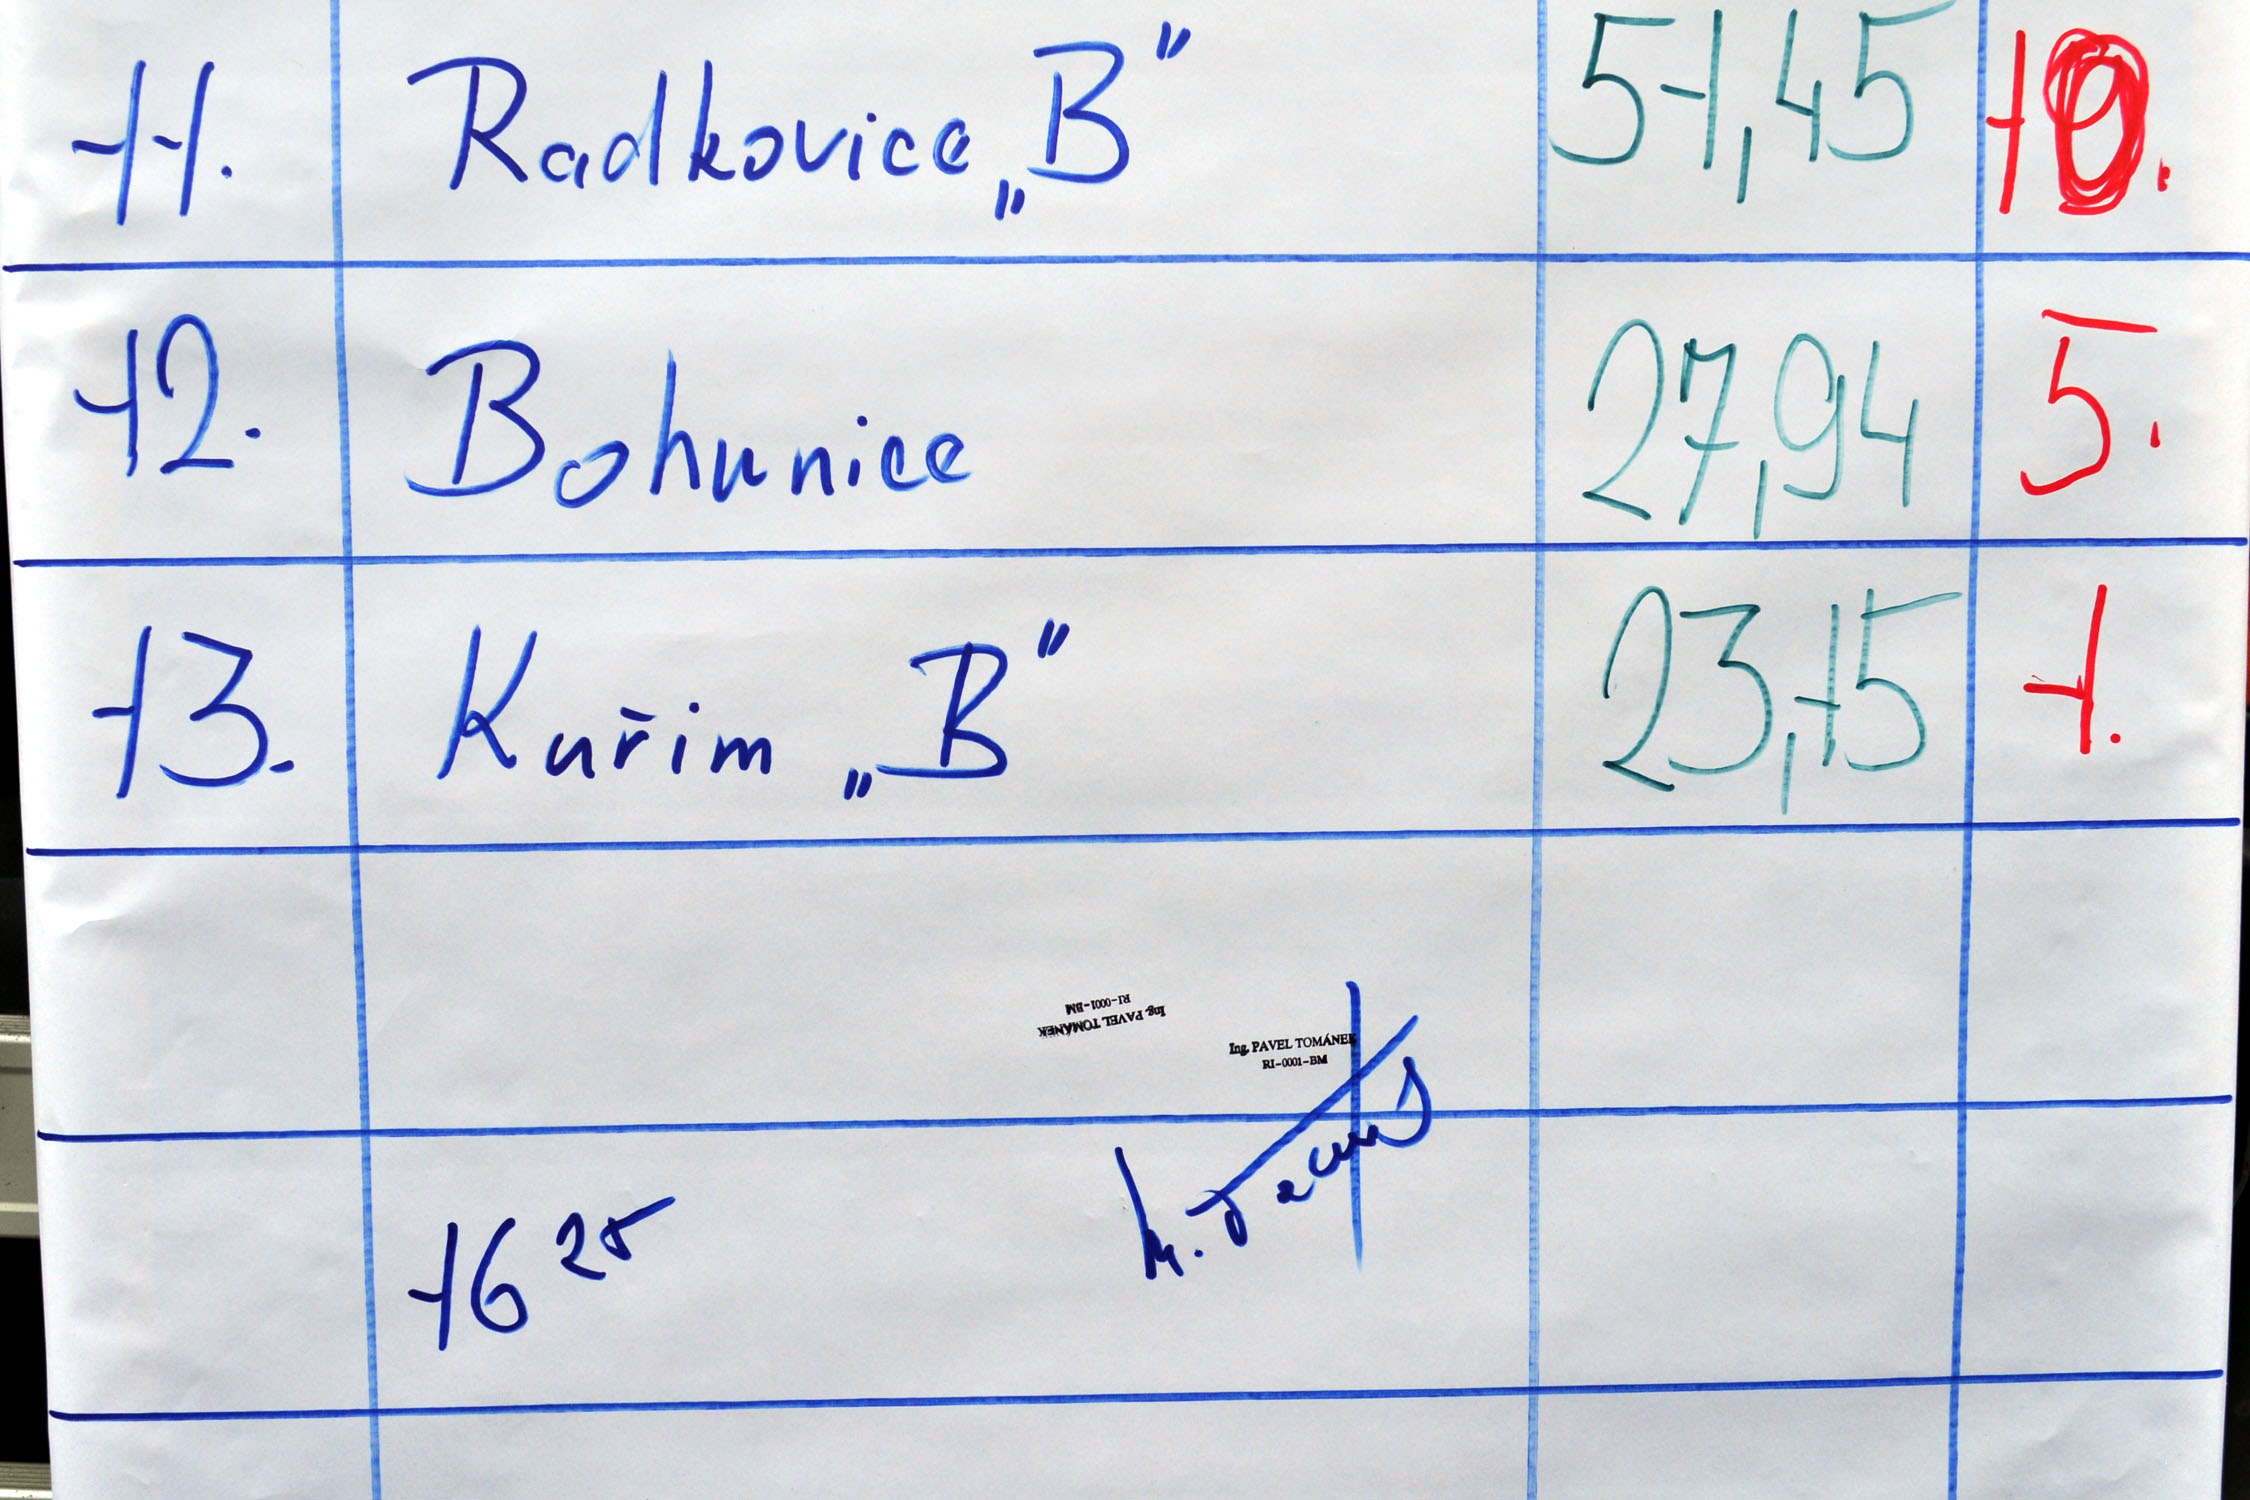 11. Radkovice „B“ 51,45 10.
12. Bohunice 27,94 5.
13. Kuřim „B“ 23,15 1.
Ing. PAVEL TOMÁNEK
RI-0001-BM
Ing. PAVEL TOMÁNEK
RI-0001-BM
16 25